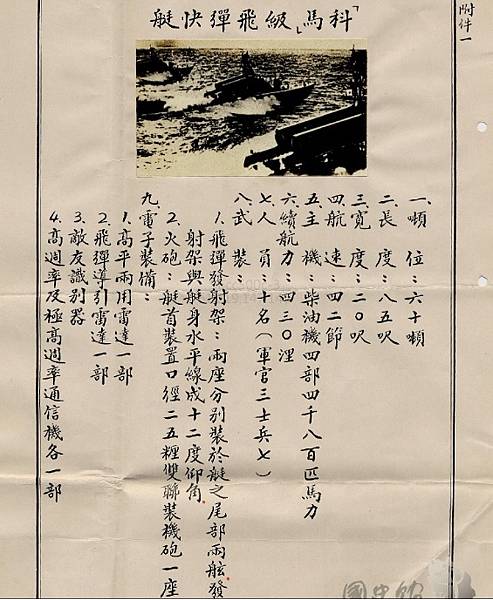 附件一
「科馬」級飛彈快艇
一、噸位：六十噸
二、長度：八五呎
三、寬度：二〇呎
四、航速：四二節
五、主機：柴油機四部四千八百匹馬力
六、續航力：四三〇浬
七、人員：十名（軍官三士兵七）
八、武裝
1.飛彈發射架：兩座分別裝於艇之尾部兩舷發
射架與艇身水平線成十二度仰角
2.火砲：艇首裝置口徑二五糎雙聯裝機砲一座
九、電子裝備：
1.高平兩用雷達一部
2.飛彈導引雷達一部
3.敵友識別器
4.高週率及極高週率通信機各一部
國史館